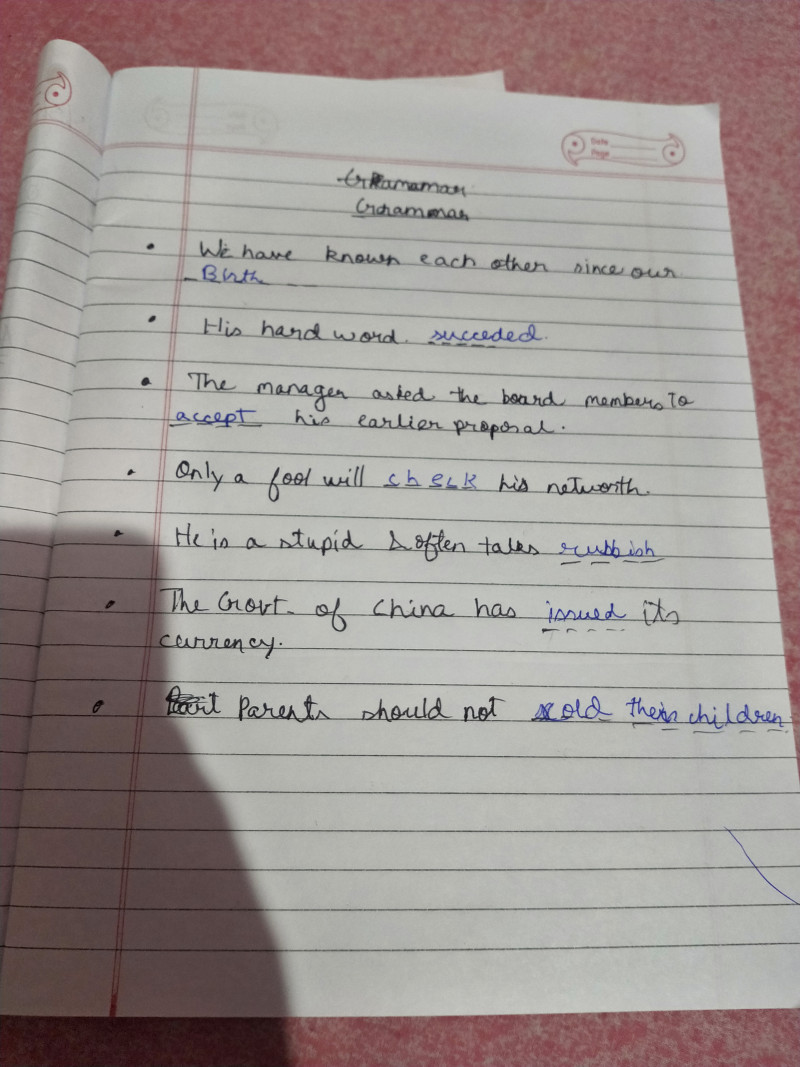 Date
Page
Grammar
Grammar
• We have known each other since our
Birth
• His hard word. succeded.
• The manager asked the board members To
accept his earlier proposal.
• Only a fool will check his networth.
• He is a stupid & often talks rubbish
• The Govt. of China has issued its
currency.
• Parents should not scold their children